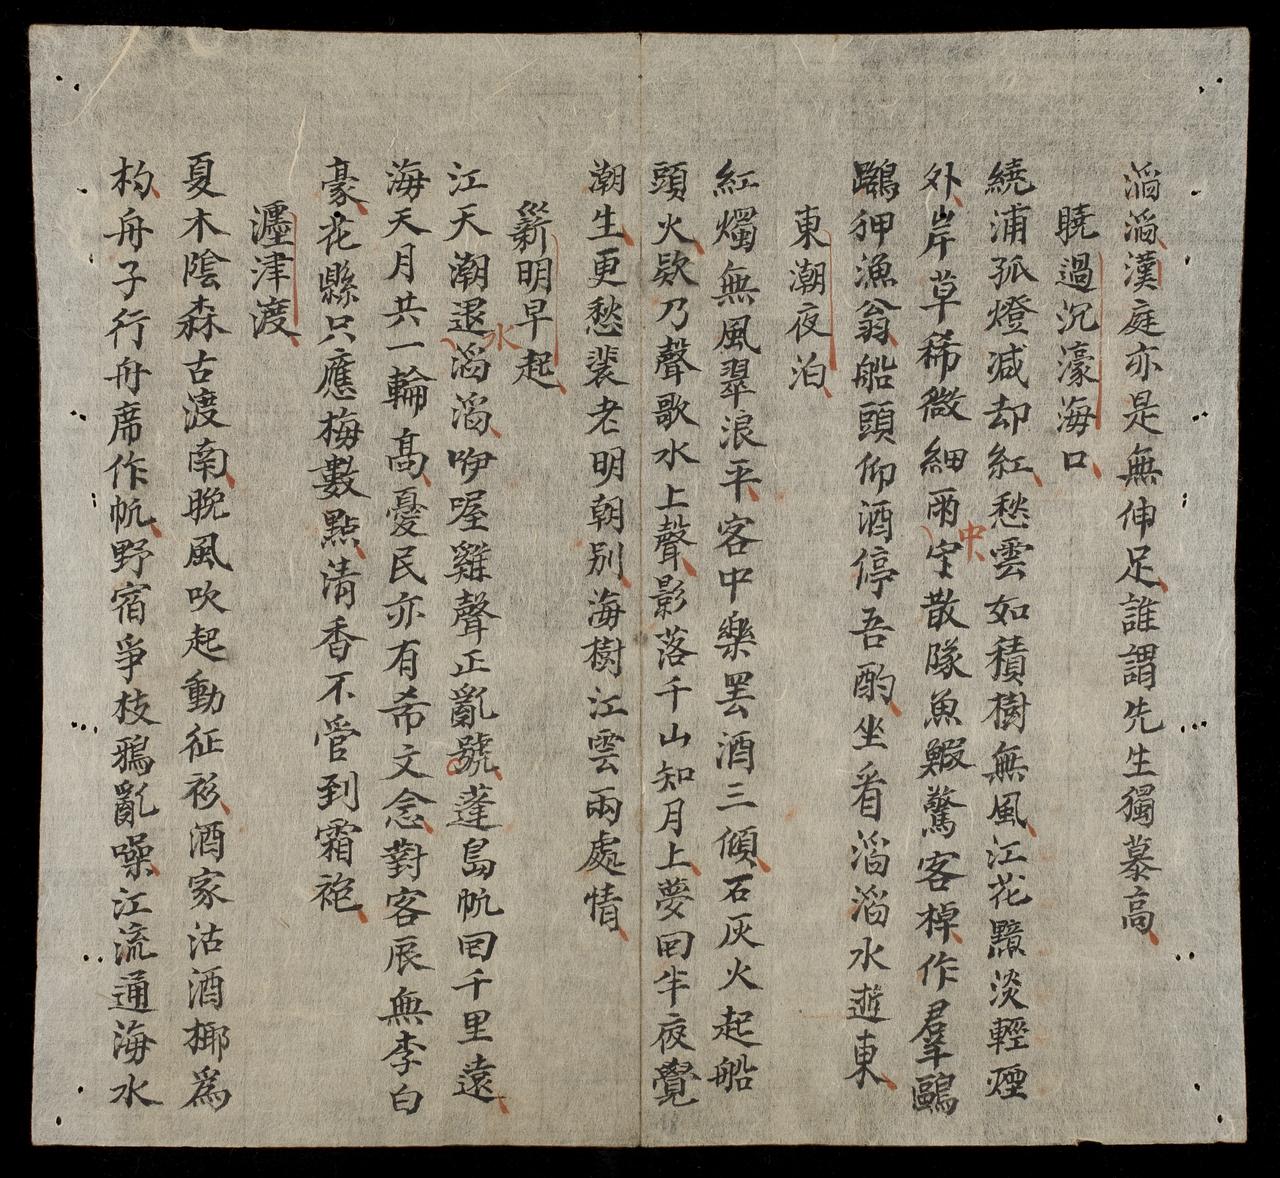 滔滔漢庭亦是無伸足誰謂先生獨慕高
曉過沉濠海口
繞浦孤燈減却紅愁雲如積樹無風江花黯淡輕煙
外岸草稀微細雨中字散隊魚鰕驚客棹作羣鷗
鷀狎漁翁船頭仰酒停吾酌坐看滔滔水逝東
東潮夜泊
紅燭無風翠浪平客中樂罢酒三傾石灰火起船
頭火欵乃聲歌水上聲影落千山知月上夢回半夜覺
潮生更愁裴老明朝别海樹江雲兩處情
新明早起
江天潮退水滔滔咿喔雞聲正亂號蓬島帆回千里遠
海天月共一輪高憂民亦有希文念對客辰無李白
豪花縣只應梅數點清香不管到霜袍
瀍津渡
夏木陰森古渡南晚風吹起動征衫酒家沽酒椰爲
杓舟子行舟席作帆野宿爭枝鴉亂噪江流通海水